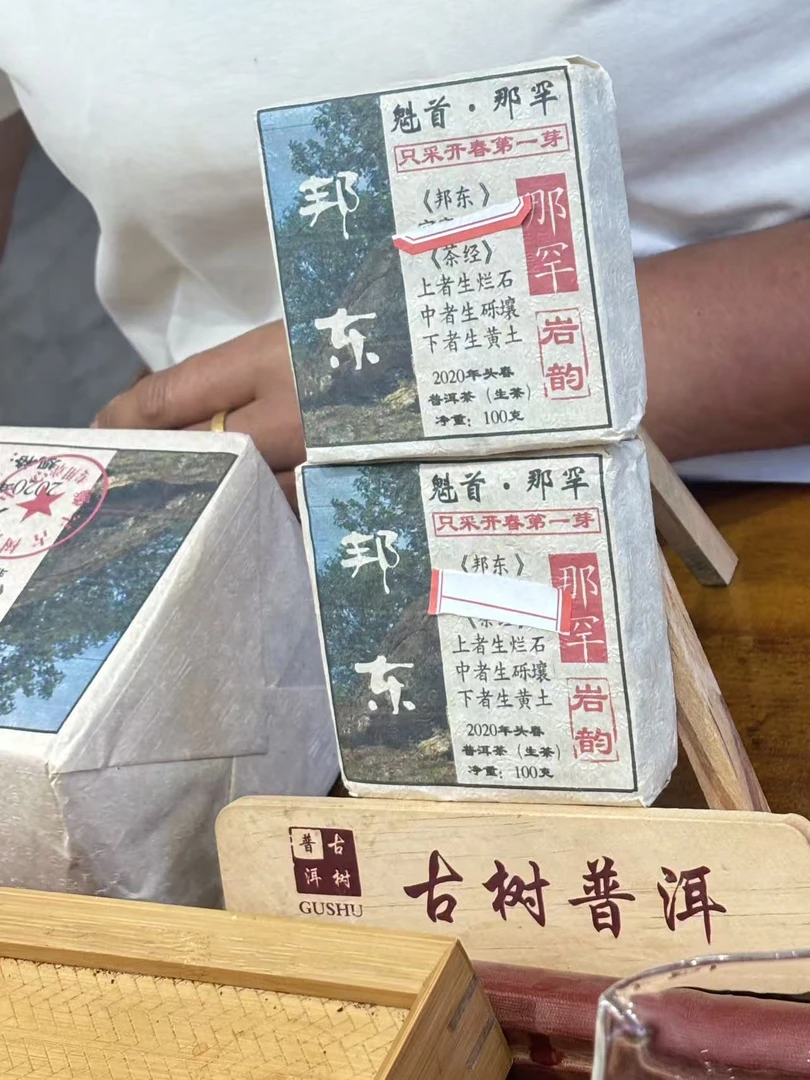 魁首·那罕
只采开春第一芽
邦东
《邦东》
《茶经》
上者生烂石
中者生砾壤
下者生黄土
那罕
岩韵
2020年头春
普洱茶（生茶）
净重：100克
魁首·那罕
只采开春第一芽
邦东
《邦东》
上者生烂石
中者生砾壤
下者生黄土
那罕
岩韵
2020年头春
普洱茶（生茶）
净重：100克
古树普洱
GUSHU
古树普洱